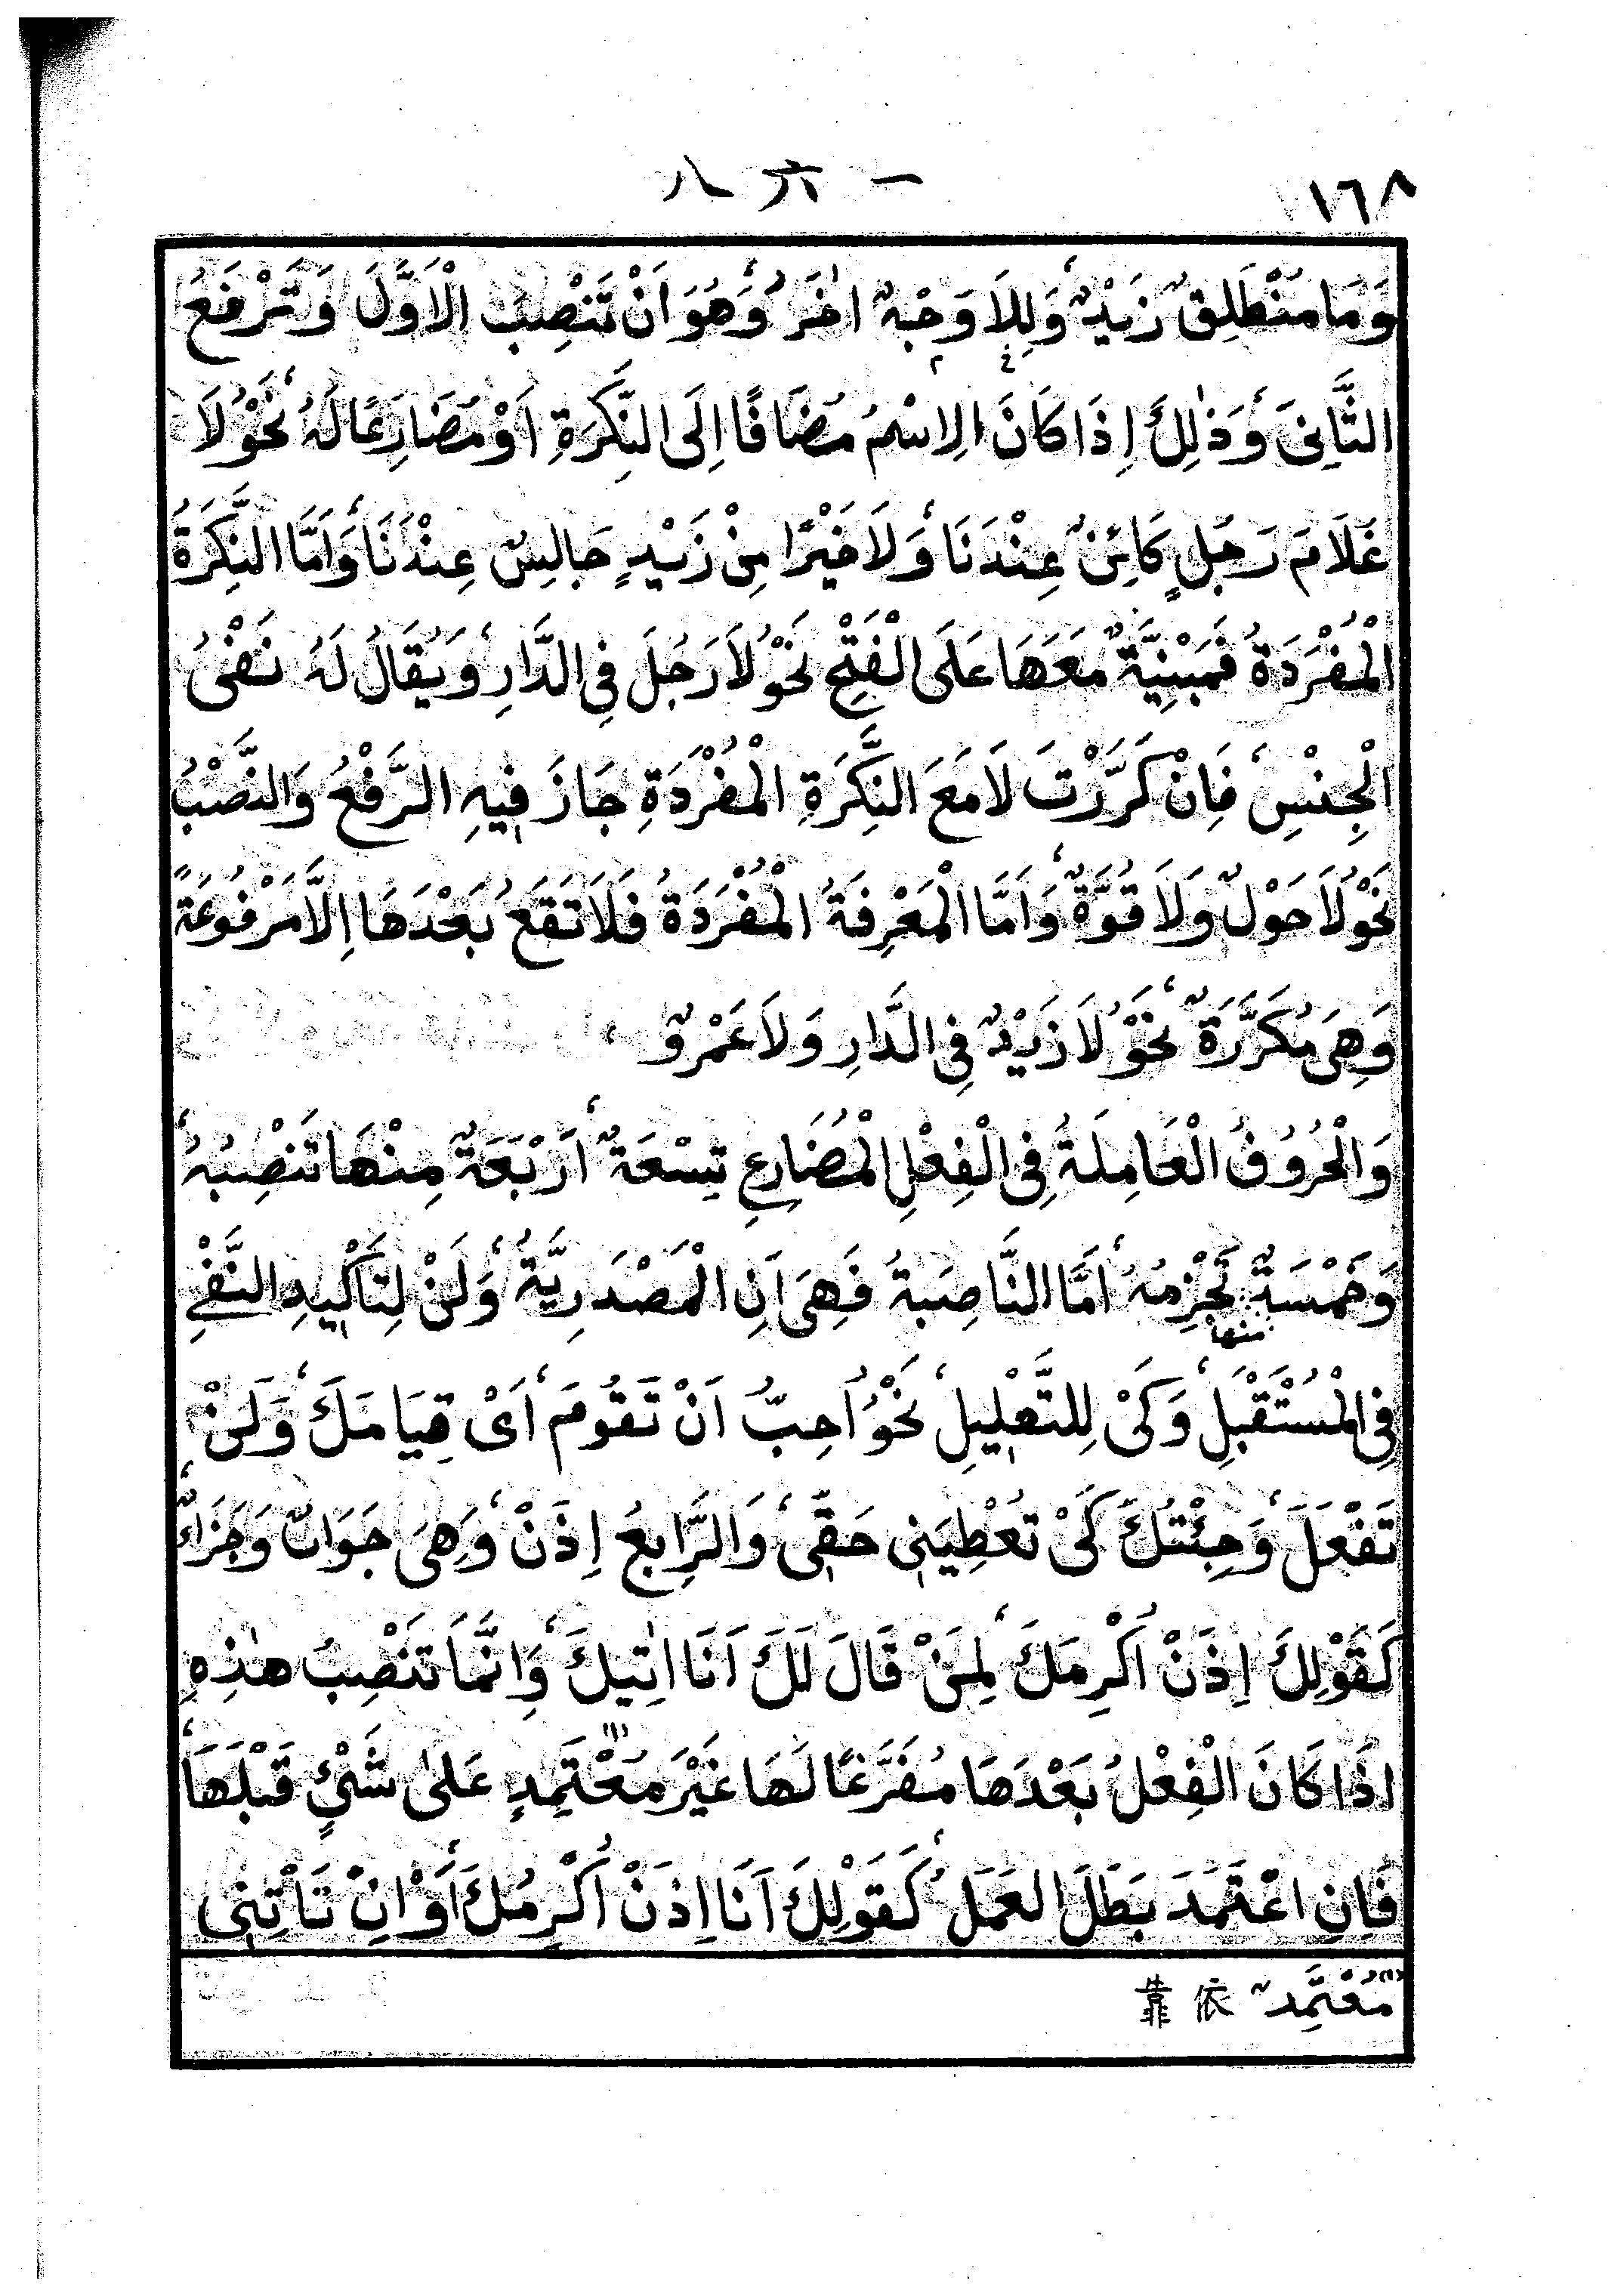 ١٦٨ 一 六 八
وَمَا مُنْطَلِقٌ زَيْدٌ، وَلِلَا وَجْهٌ اٰخَرُ، وَهُوَ اَنْ تَنْصِبَ الْاَوَّلَ وَتَرْفَعَ
الثَّانِىَ، وَذٰلِكَ اِذَا كَانَ الِاسْمُ مُضَافًا اِلَى النَّكِرَةِ اَوْ مُضَارِعًا لَهُ، نَحْوُ لَا
غُلَامَ رَجُلٍ كَائِنٌ عِنْدَنَا، وَلَا خَيْرًا مِنْ زَيْدٍ جَالِسٌ عِنْدَنَا، وَاَمَّا النَّكِرَةُ
الْمُفْرَدَةُ فَمَبْنِيَّةٌ مَعَهَا عَلَى الْفَتْحِ نَحْوُ لَا رَجُلَ فِى الدَّارِ، وَيُقَالُ لَهُ نَفْىُ
الْجِنْسِ، فَاِنْ كَرَّرْتَ لَا مَعَ النَّكِرَةِ الْمُفْرَدَةِ جَازَ فِيهِ الرَّفْعُ وَالنَّصْبُ
نَحْوُ لَا حَوْلٌ وَلَا قُوَّةٌ، وَاَمَّا الْمَعْرِفَةُ الْمُفْرَدَةُ فَلَا تَقَعُ بَعْدَهَا اِلَّا مَرْفُوعَةً
وَهِىَ مُكَرَّرَةٌ، نَحْوُ لَا زَيْدٌ فِى الدَّارِ وَلَا عَمْرٌو
وَالْحُرُوفُ الْعَامِلَةُ فِى الْفِعْلِ الْمُضَارِعِ تِسْعَةٌ، اَرْبَعَةٌ مِنْهَا تَنْصِبُهُ،
وَخَمْسَةٌ منها تَجْزِمُهُ، اَمَّا النَّاصِبَةُ فَهِىَ اَنِ الْمَصْدَرِيَّةُ، وَلَنْ لِتَاْكِيدِ النَّفْىِ
فِى الْمُسْتَقْبَلِ، وَكَىْ لِلتَّعْلِيلِ، نَحْوُ اُحِبُّ اَنْ تَقُومَ، اَىْ قِيَامَكَ، وَلَنْ
تَفْعَلَ، وَجِئْتُكَ كَىْ تُعْطِيَنِى حَقِّى، وَالرَّابِعُ اِذَنْ، وَهِىَ جَوَابٌ وَجَزَاءٌ،
كَقَوْلِكَ اِذَنْ اُكْرِمَكَ، لِمَنْ قَالَ لَكَ اَنَا اٰتِيكَ، وَاِنَّمَا تَنْصِبُ هٰذِهِ
اِذَا كَانَ الْفِعْلُ بَعْدَهَا مُفَرَّغًا لَهَا غَيْرَ مُعْتَمِدٍ (١) عَلٰى شَىْءٍ قَبْلَهَا،
فَاِنِ اعْتَمَدَ بَطَلَ الْعَمَلُ، كَقَوْلِكَ اَنَا اِذَنْ اُكْرِمُكَ، اَوْ اِنْ تَاْتِنِى
(١) مُعْتَمِدٌ 依 靠